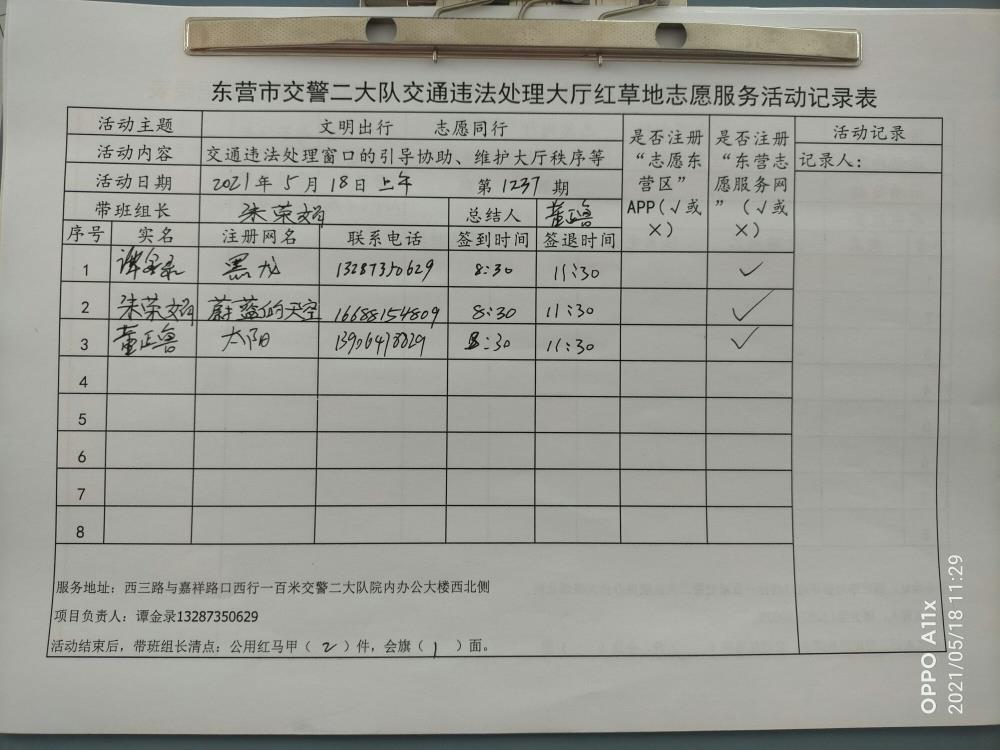 东营市交警二大队交通违法处理大厅红草地志愿服务活动记录表
活动主题 文明出行 志愿同行 是否注册“志愿东营区”APP(√或×) 是否注册“东营志愿服务网”(√或×) 活动记录
活动内容 交通违法处理窗口的引导协助、维护大厅秩序等 记录人:
活动日期 2021年5月18日上午 第1237期
带班组长 朱荣娟 总结人 董正鲁
序号 实名 注册网名 联系电话 签到时间 签退时间
1 谭金录 黑龙 13287350629 8:30 11:30 ✓
2 朱荣娟 蔚蓝的天空 16688154809 8:30 11:30 ✓
3 董正鲁 太阳 8:30 11:30 ✓
4
5
6
7
8
服务地址:西三路与嘉祥路口西行一百米交警二大队院内办公大楼西北侧
项目负责人:谭金录13287350629
活动结束后,带班组长清点:公用红马甲(2)件,会旗(1)面。
OPPO A11x
2021/05/18 11:29